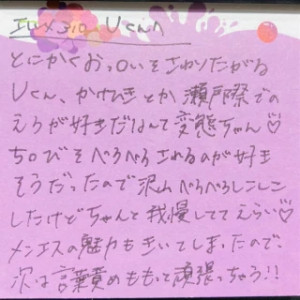 Uくん
とにかくおっ〇いをさわりたがる
Uくん、かけひきとか瀬戸際での
えろが好きだなんて変態ちゃん♡
ち〇びをぺろぺろされるのが好き
そうだったので沢山ぺろぺろしこしこ
したけどちゃんと我慢しててえらい♡
メンエスの魅力もきいてしまったので、
次は言葉責めももっと頑張っちゃう!!